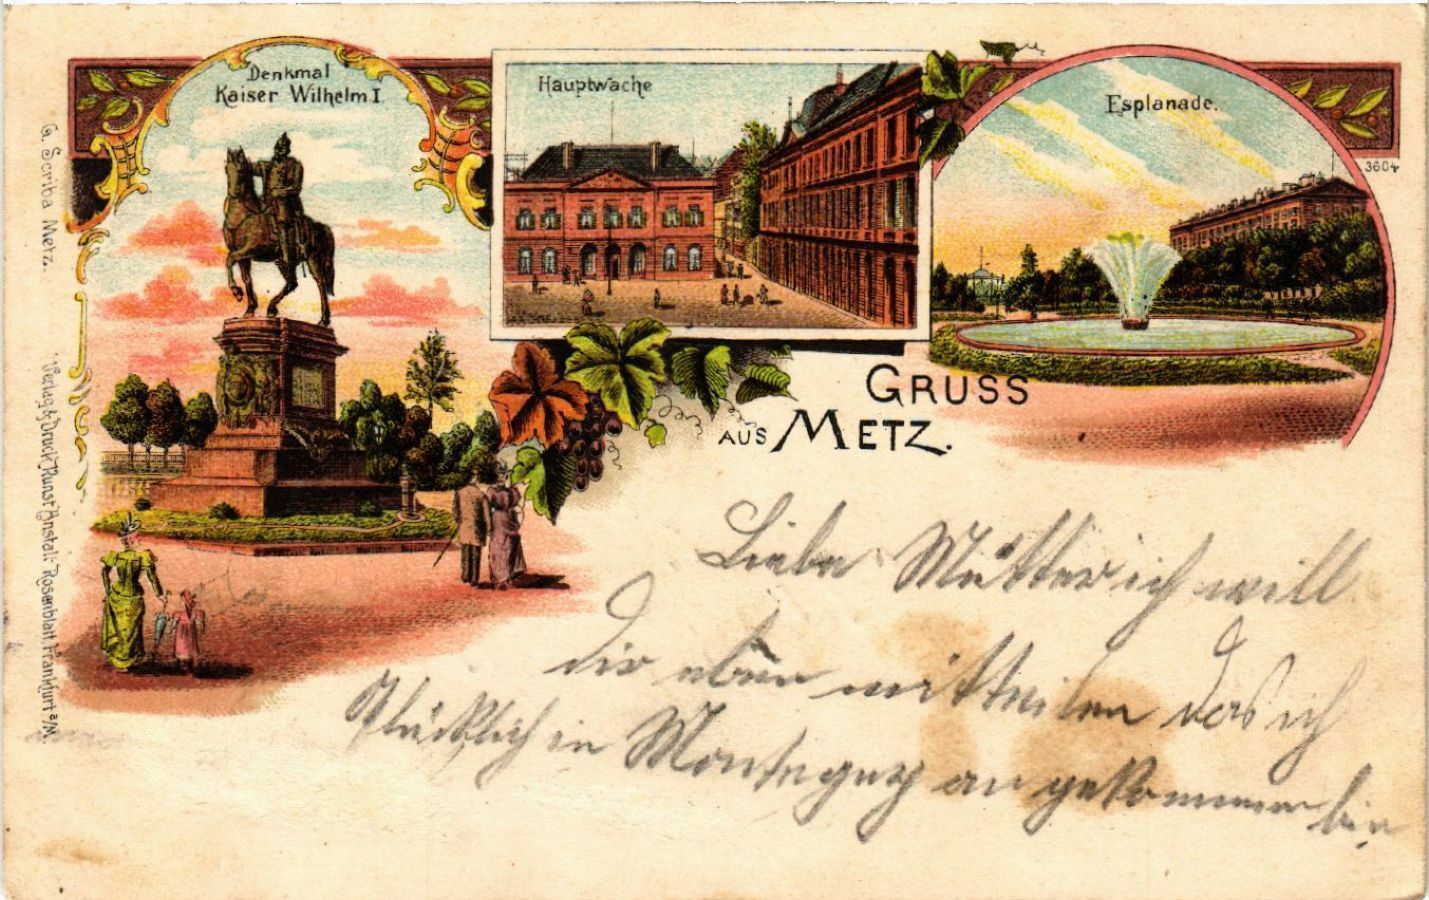 Denkmal
Kaiser Wilhelm I.
Hauptwache
Esplanade.
3604
GRUSS
AUS METZ.
G. Scriba Metz.
Verlag & Druck Kunst Anstalt Rosenblatt, Frankfurt a/M.
Liebe Mutter ich will
dir eben mitteilen das ich
Glücklich in an gekommen bin